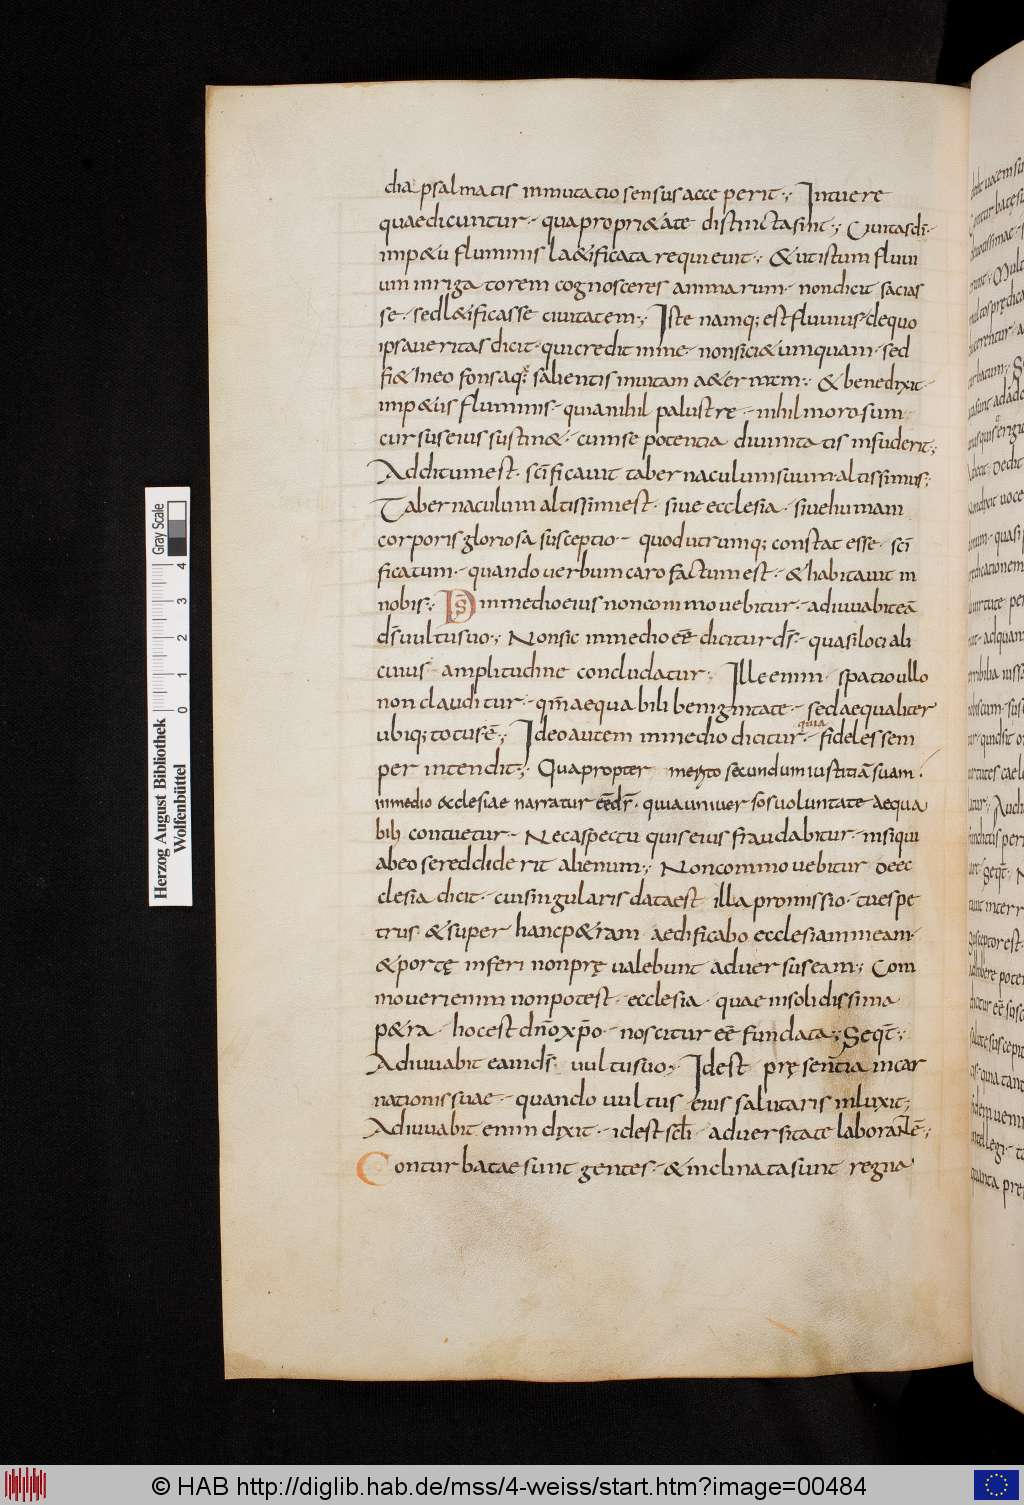 dia psalmatis inmutatio sensus acceperit·; Intuere
quae dicuntur· qua propri&ate distincta sint·; Ciuitas dī·
imp&u fluminis l&ificata requieuit·; & ut istum fluui
um inrigatorem cognosceres animarum· non dicit sacias
se· sed l&ificasse ciuitatem·; Iste namq; est fluuius· de quo
ipsa ueritas dicit· qui credit in me· non sici& umquam· sed
fi& In eo fons aq; salientis in uitam a&ernam·; & bene dixit·
imp&us fluminis· quia nihil palustre· nihil morosum
cursus eius sustin&· cum se potentia diuinitatis infuderit·;
Additum est· scīficauit tabernaculum suum altissimus·;
Tabernaculum altissimi est· siue ecclesia· siue humani
corporis gloriosa susceptio· quod utrumq; constat esse· scī
ficatum· quando uerbum caro factum est· & habitauit in
nobis·; Dš in medio eius non commouebitur· adiuuabit eā
dš uultu suo·; Non sic in medio eē dicitur dš· quasi loci ali
cuius amplitudine concludatur·; Ille enim spatio ullo
non clauditur· qm̄ aequabili benignitate· sed aequaliter
ubiq; totus ē·; Ideo autem in medio dicitur· quia fideles sem
per intendit·; Quapropter merito secundum iustitiā suam·
in medio &cclesiae narratur eē dš· quia uniuersos uoluntate aequa
bili contuetur· Nec aspectu quis eius fraudabitur· nisi qui
ab eo se reddiderit alienum·; Non commouebitur de ec
clesia dicit· cui singularis data est illa promissio· tu es pe
trus· & super hanc p&ram aedificabo ecclesiam meam·
& portę inferi non pręualebunt aduersus eam·; Com
moueri enim non potest· ecclesia· quae in solidissima
p&ra· hoc est dn̄o xp̄o· noscitur eē fundata·; Seqt̄·;
Adiuuabit eam dš uultu suo·; Id est pręsentia incar
nationis suae· quando uultus eius salutaris inluxit·;
Adiuuabit enim dixit· id est scłi aduersitate laborantē·;
Conturbatae sunt gentes· & inclinata sunt regna
Herzog August Bibliothek
Wolfenbüttel
0 1 2 3 4
Gray Scale
© HAB http://diglib.hab.de/mss/4-weiss/start.htm?image=00484